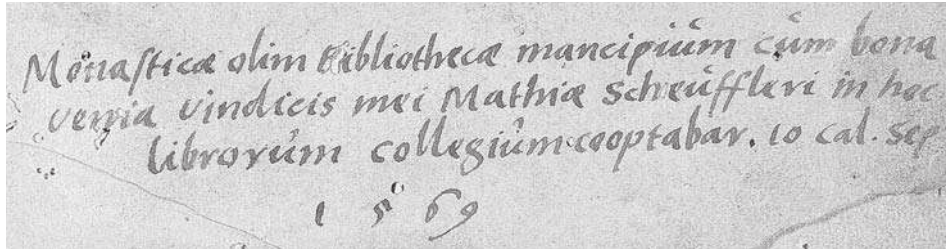 Monasticæ olim Bibliothecæ mancipium cum bona
venia vindicis mei Mathiæ Scheuffleri in hoc
librorum collegium cooptabar. 10 cal. sep
1569